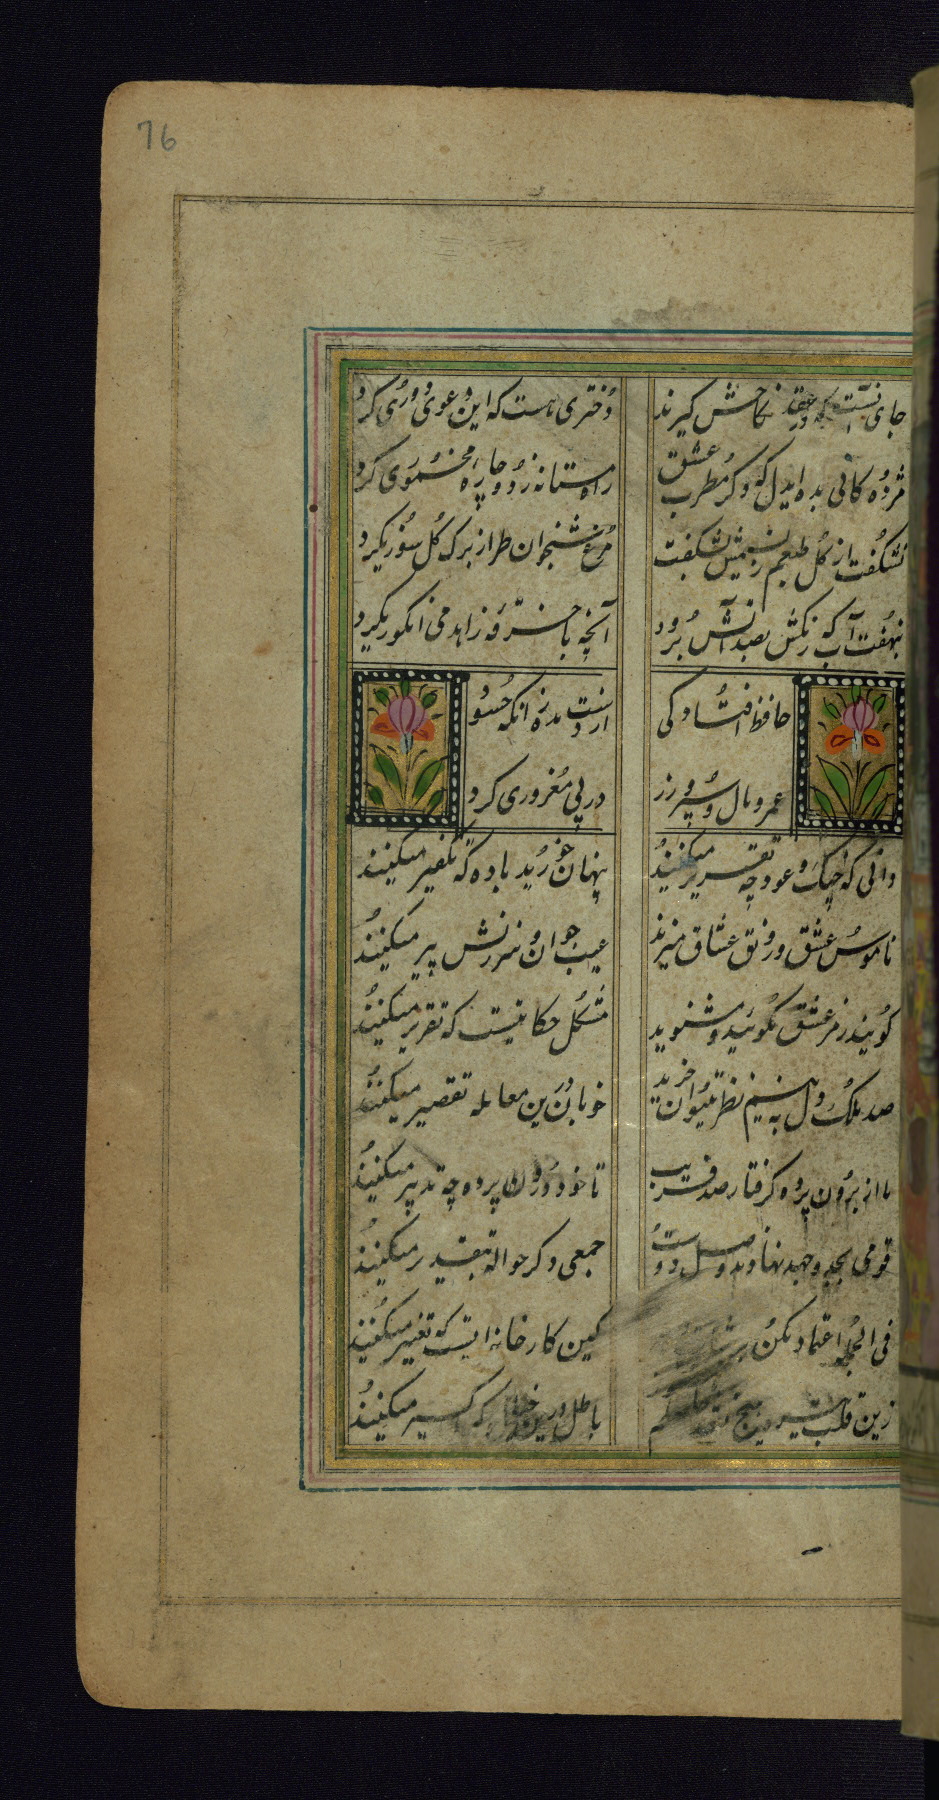 76
جای نست که در عقد نکاحش گیرند دختری مست که این دعوی دوری کرد
مژده کانی بده ایدل که دگر مطرب عشق راه مستانه زد و چاره مخموری کرد
نشکفت از گل طبعم ز نسیمش بشکفت مرغ شبخوان طرب از برک گل سوری کرد
نه بهفت آب که رنگش بصد آتش نرود آنچه با خرقه زاهد می انگوری کرد
حافظ افتادگی از دست مده زانکه حسود
عرض و مال و سر ورز در پی مغروری کرد
دانی که چنگ و عود چه تقریر میکنند پنهان خورید باده که تکفیر میکنند
ناموس عشق و رونق عشاق میبرند عیب جوان و سرزنش پیر میکنند
گویند رمز عشق مگوئید و مشنوید مشکل حکایتیست که تقریر میکنند
صد ملک دل به نیم نظر میتوان خرید خوبان درین معامله تقصیر میکنند
ما از برون پرده گرفتار صد فریب تا خود درون پرده چه تدبیر میکنند
قومی بجد و جهد نهادند وصل دوست جمعی دگر حواله بتقدیر میکنند
فی الجمله اعتماد مکن بر ثبات کین کارخانه ایست که تغییر میکنند
زین قلب تیره هیچ نشد حاصلم باطل درین خیال که اکسیر میکنند